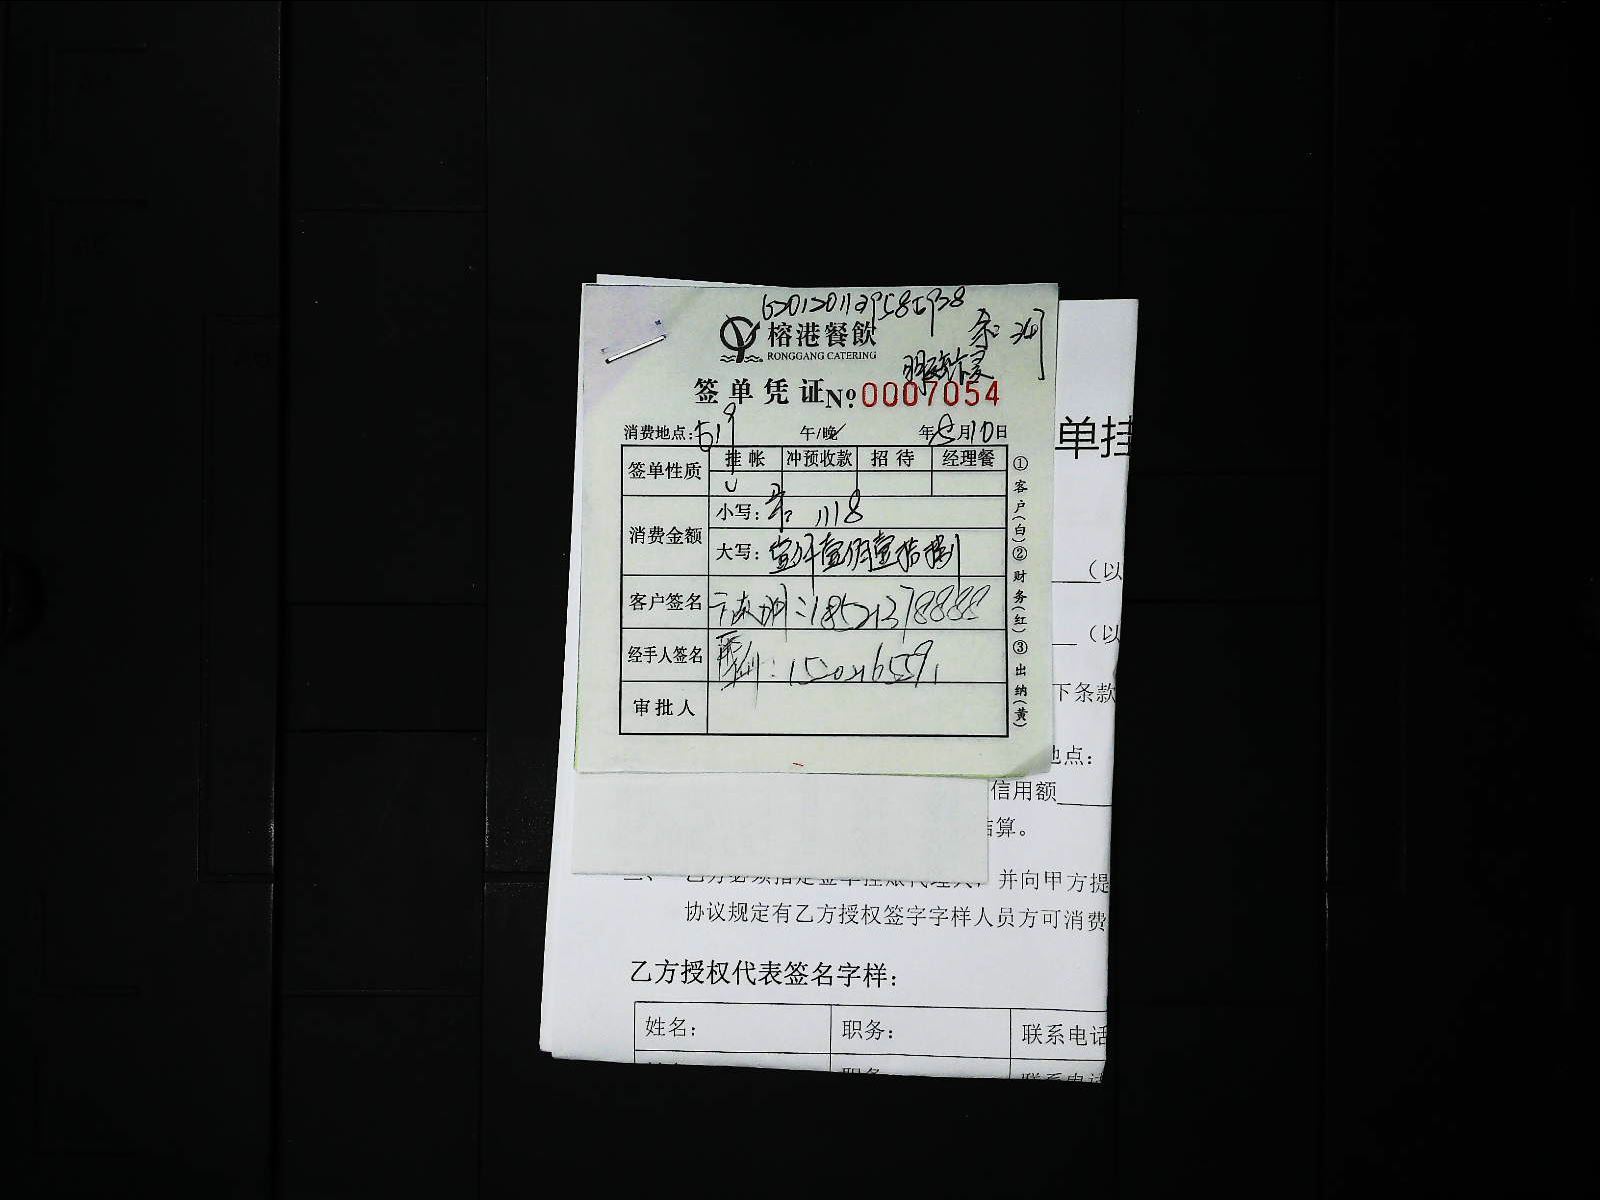 榕港餐飲
RONGGANG CATERING
签单凭证 No 0007054
消费地点: 午/晚 年5月10日
签单性质 挂帐 冲预收款 招待 经理餐
消费金额
小写: 1118
大写: 壹仟壹佰壹拾捌
客户签名 18521378888
经手人签名
审批人
①客户(白)②财务(红)③出纳(黄)
单挂
（以
（以
下条款
地点：
信用额
结算。
二、 乙方必须指定签单挂账代理人，并向甲方提
协议规定有乙方授权签字字样人员方可消费
乙方授权代表签名字样：
姓名： 职务： 联系电话
职务 联系电话